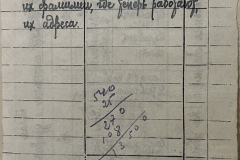 их фамилии, где теперь работают,
их адреса.
540
25
270
108
13500